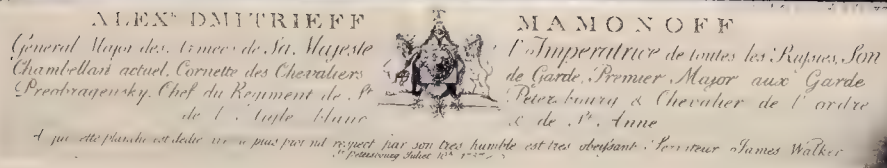 ALEX.R DMITRIEFF MAMONOFF
General Major des Armees de Sa Majeste l'Imperatrice de toutes les Russies, Son
Chambellan actuel, Cornette des Chevaliers de Garde, Premier Major aux Garde
Preobragensky, Chef du Regiment de St Petersbourg & Chevalier de l'ordre
de l'Aigle blanc & de St Anne
cette planche est dedie par son tres humble est tres obeissant Serviteur James Walker
St Petersbourg Juliet